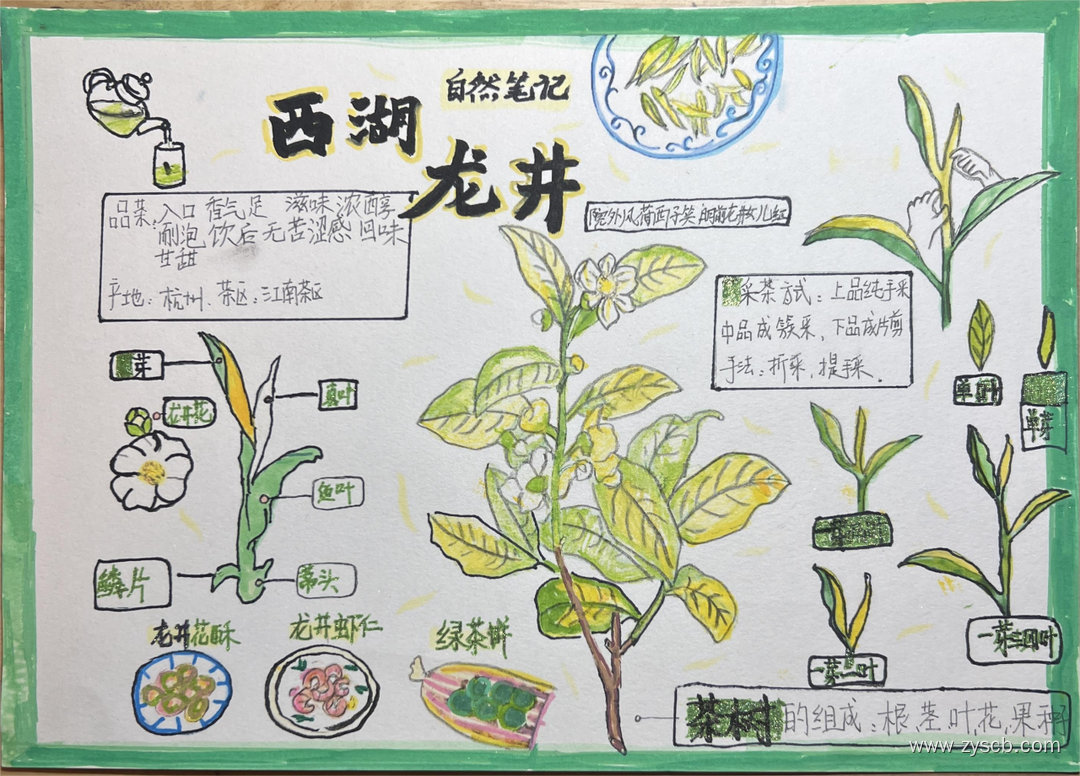 自然笔记
西湖
龙井
品茶:入口香气足 滋味浓醇
耐泡 饮后无苦涩感 回味
甘甜
产地:杭州、茶区:江南茶区
采茶方式:上品纯手采
中品成簇采、下品成片剪
手法:折采,提手采.
芽
真叶
龙井花
鱼叶
鳞片
蒂头
单叶
单芽
一芽二叶
一芽三四叶
龙井花酥
龙井虾仁
绿茶饼
茶树的组成:根、茎、叶、花、果、种
www.zyscb.com